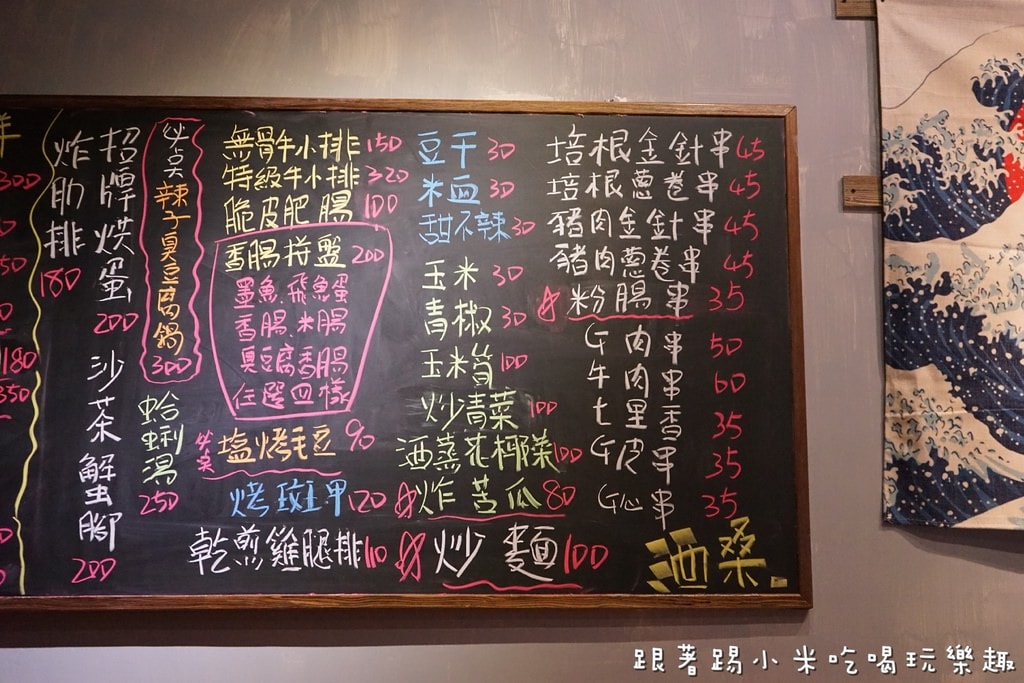 羊
300
50
180
350
炸肋排
180
招牌烘蛋
200
沙茶蟹腳
200
必点
辣子臭豆腐鍋
300
蛤蜊湯
250
無骨牛小排 150
特級牛小排 320
脆皮肥腸 100
香腸拼盤 200
墨魚.飛魚蛋
香腸.米腸
臭豆腐香腸
任選四樣
必点 塩烤毛豆 90
烤斑甲 120
乾煎雞腿排 110
豆干 30
米血 30
甜不辣 30
玉米 30
青椒 30
玉米筍 100
炒青菜 100
酒蒸花椰菜 100
炸苦瓜 80
炒麵 100
培根金針串 45
培根蔥卷串 45
豬肉金針串 45
豬肉蔥卷串 45
粉腸串 35
G肉串 50
牛肉串 60
七里香 35
G皮串 35
G心串 35
酒桑
跟著踢小米吃喝玩樂趣